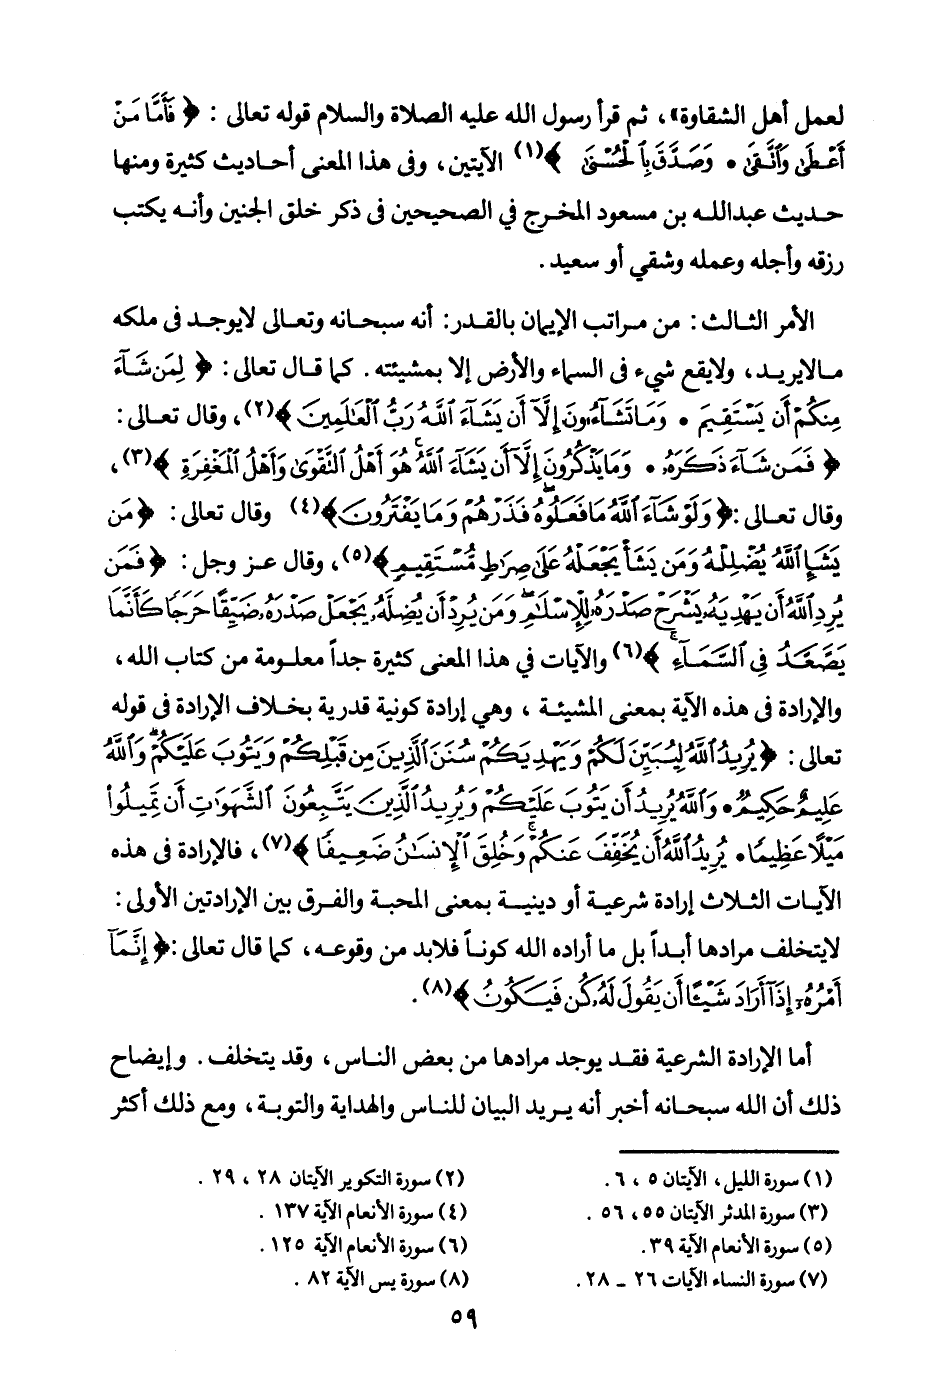 لعمل أهل الشقاوة»، ثم قرأ رسول الله عليه الصلاة والسلام قوله تعالى : ﴿ فَأَمَّا مَنْ
أَعْطَىٰ وَاتَّقَىٰ • وَصَدَّقَ بِالْحُسْنَىٰ ﴾(١) الآيتين، وفى هذا المعنى أحاديث كثيرة ومنها
حديث عبدالله بن مسعود المخرج في الصحيحين فى ذكر خلق الجنين وأنه يكتب
رزقه وأجله وعمله وشقي أو سعيد.
الأمر الثالث: من مراتب الإيمان بالقدر: أنه سبحانه وتعالى لايوجد فى ملكه
مالايريد، ولايقع شيء فى السماء والأرض إلا بمشيئته. كما قال تعالى: ﴿ لِمَن شَآءَ
مِنكُمْ أَن يَسْتَقِيمَ • وَمَا تَشَآءُونَ إِلَّآ أَن يَشَآءَ اللَّهُ رَبُّ الْعَالَمِينَ ﴾(٢)، وقال تعالى:
﴿ فَمَن شَآءَ ذَكَرَهُۥ • وَمَا يَذْكُرُونَ إِلَّآ أَن يَشَآءَ اللَّهُ ۚ هُوَ أَهْلُ التَّقْوَىٰ وَأَهْلُ الْمَغْفِرَةِ ﴾(٣)،
وقال تعالى :﴿ وَلَوْ شَآءَ اللَّهُ مَا فَعَلُوهُ ۖ فَذَرْهُمْ وَمَا يَفْتَرُونَ ﴾(٤) وقال تعالى: ﴿ مَن
يَشَإِ اللَّهُ يُضْلِلْهُ وَمَن يَشَأْ يَجْعَلْهُ عَلَىٰ صِرَاطٍ مُّسْتَقِيمٍ ﴾(٥)، وقال عز وجل: ﴿ فَمَن
يُرِدِ اللَّهُ أَن يَهْدِيَهُۥ يَشْرَحْ صَدْرَهُۥ لِلْإِسْلَٰمِ ۖ وَمَن يُرِدْ أَن يُضِلَّهُۥ يَجْعَلْ صَدْرَهُۥ ضَيِّقًا حَرَجًا كَأَنَّمَا
يَصَّعَّدُ فِي السَّمَآءِ ۚ ﴾(٦) والآيات في هذا المعنى كثيرة جداً معلومة من كتاب الله،
والإرادة فى هذه الآية بمعنى المشيئة ، وهي إرادة كونية قدرية بخلاف الإرادة فى قوله
تعالى: ﴿ يُرِيدُ اللَّهُ لِيُبَيِّنَ لَكُمْ وَيَهْدِيَكُمْ سُنَنَ الَّذِينَ مِن قَبْلِكُمْ وَيَتُوبَ عَلَيْكُمْ ۗ وَاللَّهُ
عَلِيمٌ حَكِيمٌ • وَاللَّهُ يُرِيدُ أَن يَتُوبَ عَلَيْكُمْ وَيُرِيدُ الَّذِينَ يَتَّبِعُونَ الشَّهَوَاتِ أَن تَمِيلُوا
مَيْلًا عَظِيمًا • يُرِيدُ اللَّهُ أَن يُخَفِّفَ عَنكُمْ ۚ وَخُلِقَ الْإِنسَٰنُ ضَعِيفًا ﴾(٧)، فالإرادة فى هذه
الآيات الثلاث إرادة شرعية أو دينية بمعنى المحبة والفرق بين الإرادتين الأولى:
لايتخلف مرادها أبداً بل ما أراده الله كوناً فلابد من وقوعه، كما قال تعالى:﴿ إِنَّمَآ
أَمْرُهُۥٓ إِذَآ أَرَادَ شَيْـًٔا أَن يَقُولَ لَهُۥ كُن فَيَكُونُ ﴾(٨).
أما الإرادة الشرعية فقد يوجد مرادها من بعض الناس، وقد يتخلف. وإيضاح
ذلك أن الله سبحانه أخبر أنه يريد البيان للناس والهداية والتوبة، ومع ذلك أكثر
(١) سورة الليل، الآيتان ٥، ٦. (٢) سورة التكوير الآيتان ٢٨ ، ٢٩ .
(٣) سورة المدثر الآيتان ٥٥، ٥٦ . (٤) سورة الأنعام الآية ١٣٧ .
(٥) سورة الأنعام الآية ٣٩. (٦) سورة الأنعام الآية ١٢٥.
(٧) سورة النساء الآيات ٢٦ - ٢٨. (٨) سورة يس الآية ٨٢ .
٥٩